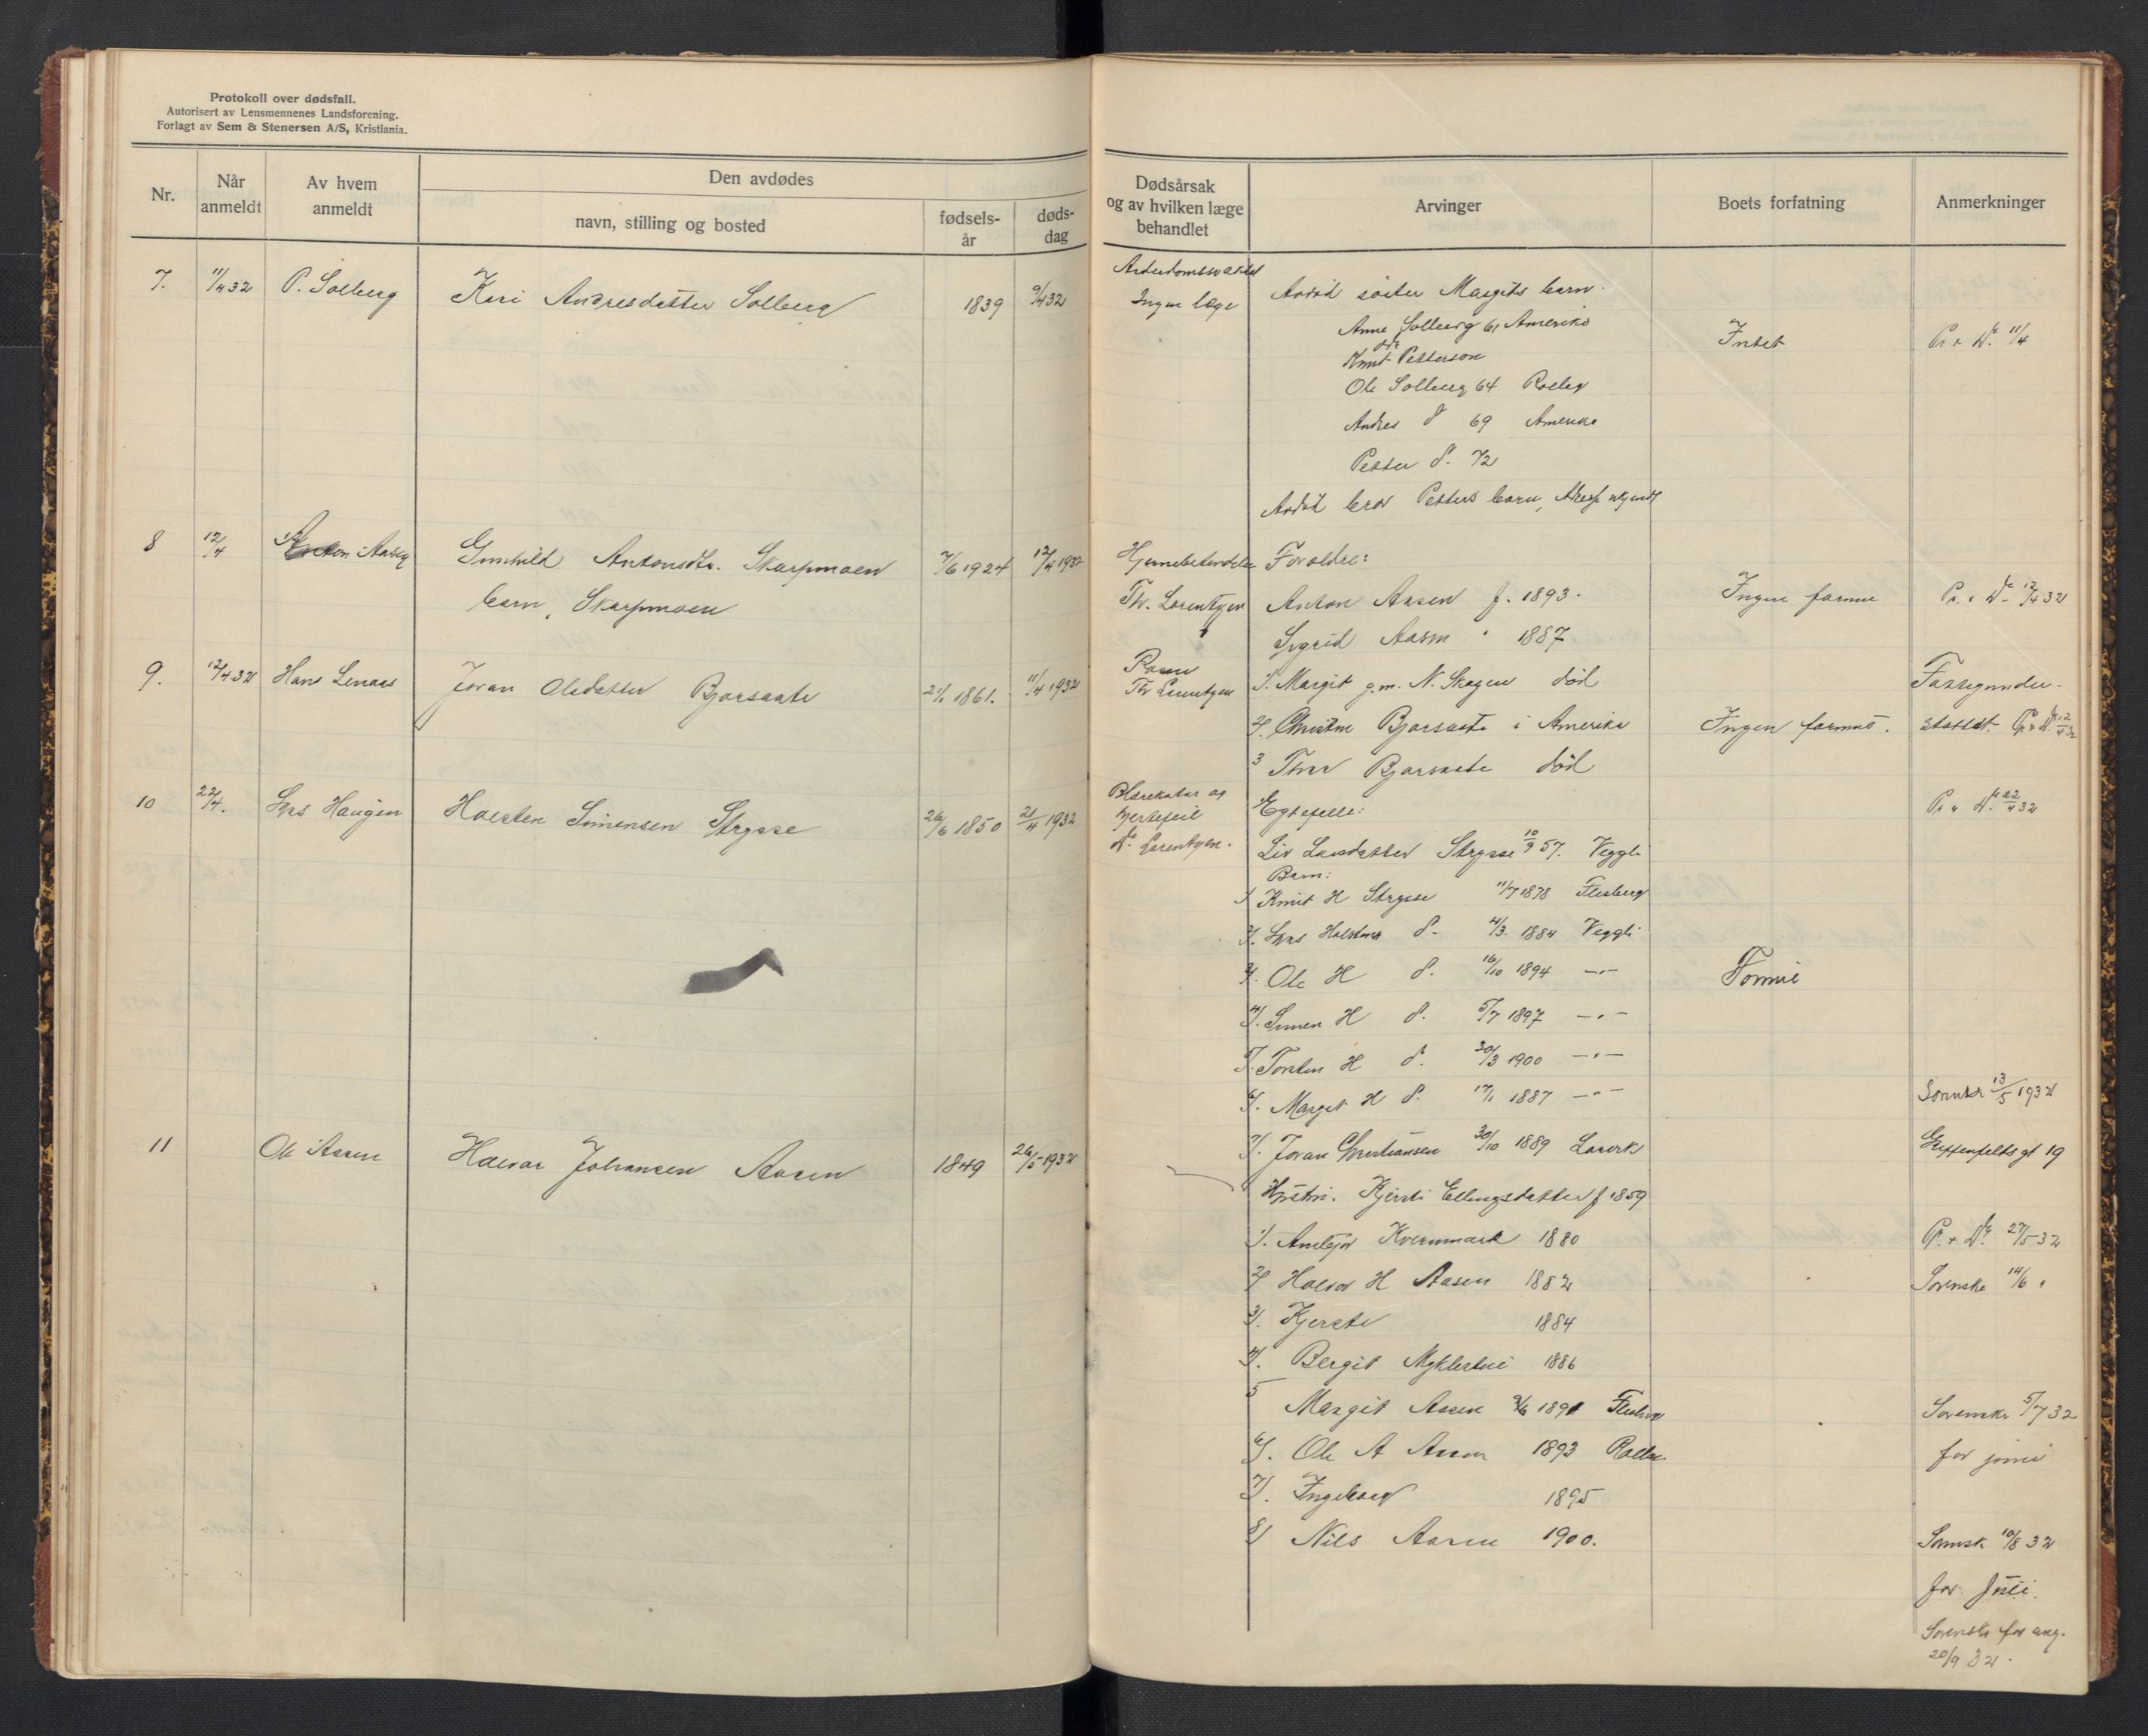 Protokoll over dødsfall.
Autorisert av Lensmennenes Landsforening.
Forlagt av Sem & Stenersen A/S, Kristiania.
Nr.
Når anmeldt
Av hvem anmeldt
Den avdødes
navn, stilling og bosted
fødsels-år
døds-dag
Dødsårsak og av hvilken læge behandlet
Arvinger
Boets forfatning
Anmerkninger
7. 11/4 32 P. Solberg Kari Andresdatter Solberg 1839 9/4 32
Ingen læge
Avdød søster Margits barn.
Anne Solberg 61 Amerika
Knut Petterson
Ole Solberg 64 Rolleg
Andres d 69 Amerika
Petter d. 72
Avdød bror Petters barn,
Intet
11/4
8 12/4 Anton Aasen Gunhild Antonsdtr. Skarpmoen 7/6 1924 12/4 1932
barn, Skarpmoen
Hjernebetendelse
Th. Lorentzen
Foreldre:
Anton Aasen f. 1893.
Sigrid Aasen " 1887
Ingen formue
12/4 32
9. 12/4 32 Hans Lenaas Jøran Olsdatter Bjørsaate 2/1 1861. 11/4 1932
Th Lorentzen
1. Margit g.m. N. Skogen død
2. Christine Bjørsaate i Amerika
3 Thor Bjørsaate død
Ingen formue.
Fattigunder-
støttet.
10 22/4. Lars Haugen Halsten Simensen Strysse 26/6 1850 21/4 1932
Blærekatar og
hjertefeil
Dr. Lorentzen.
Egtefelle:
Liv Larsdatter Strysse 10/9 57. Veggli
Barn:
1 Knut H Strysse 11/7 1878 Flesberg
2. Lars Halstens d. 4/3. 1884 Veggli
3. Ole H d. 16/10 1894 —"—
4. Simen H d. 5/7 1897 —"—
5. Torsten H d. 30/3 1900 —"—
6. Margit H d. 17/1 1887 —"—
7. Jøran Christiansen 30/10 1889 Larvik
Formue
22/4 32
13/5 1932
Griffenfeldts gt 19
11 Ole Aasen Halvor Johansen Aasen 1849 26/5 1932
Hustru. Kjersti Ellingsdatter f 1859
1. Kvernmark 1880
2 Halvor H Aasen 1882
3. Kjersti 1884
4. Bergit Myklestue 1886
5 Margit Aasen 2/6 1891 Flesberg
6. Ole A Aasen 1893 Rolleg
7. Ingeborg 1895
8 Nils Aasen 1900.
27/5 32
Sorenskr 14/6 "
Sorenskr 5/7 32
for juni
Sorensk 10/8 32
for Juli.
Sorenskr for aug.
20/9 32.